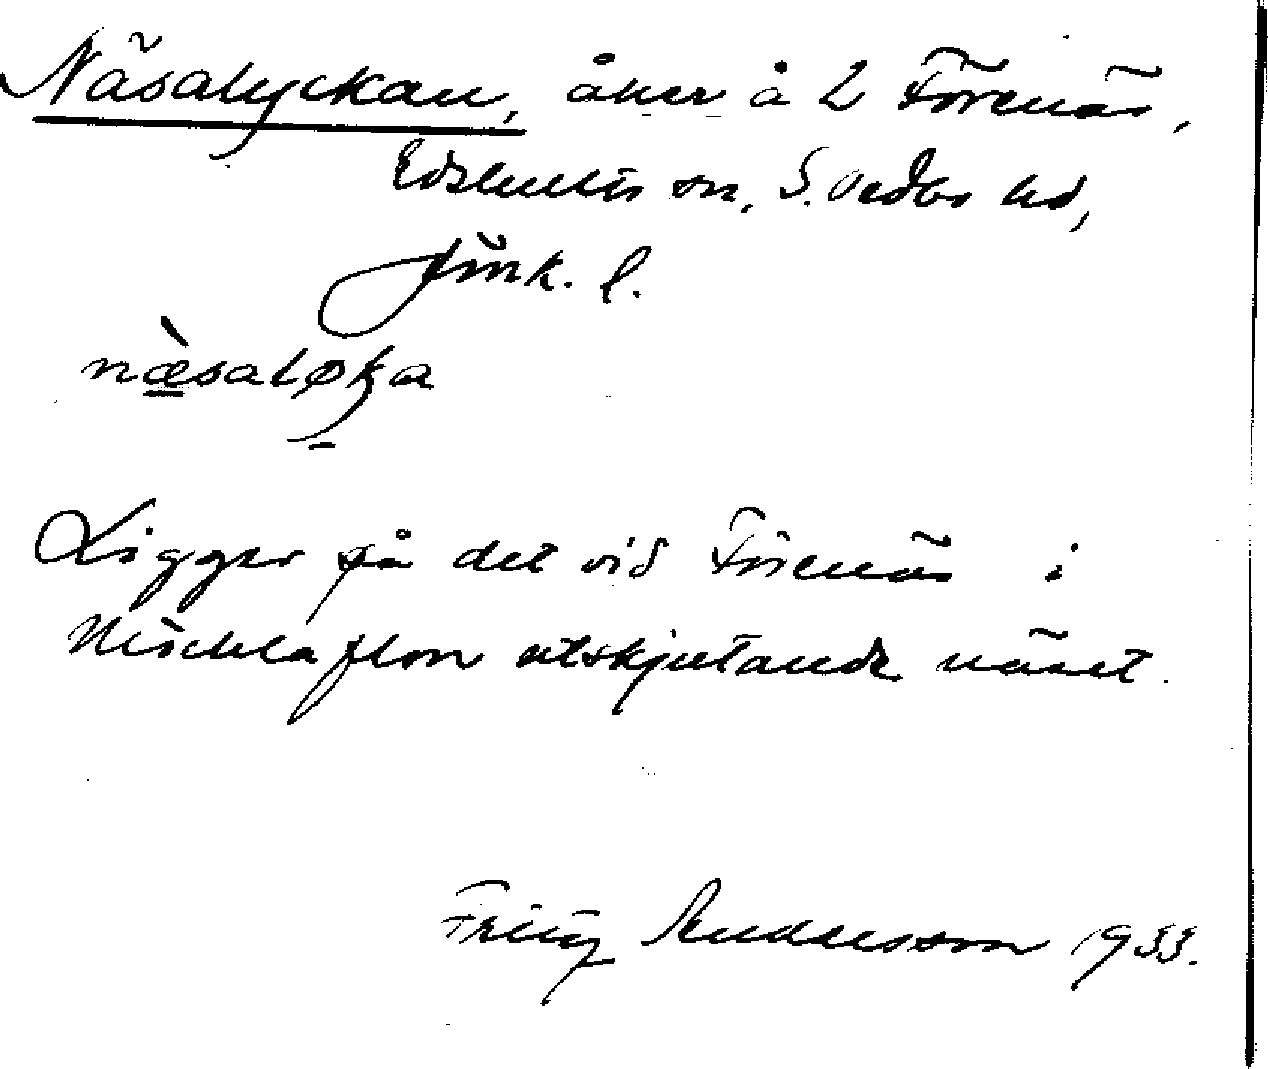 Näsalyckan, åker å 2 Förenäs,
Edshults sn, S. Vedbo hd,
Jönk. l.
næ̀saløka
Ligger på det vid Förenäs i
flon utskjutande näset.
Fritz Andersson 1933.